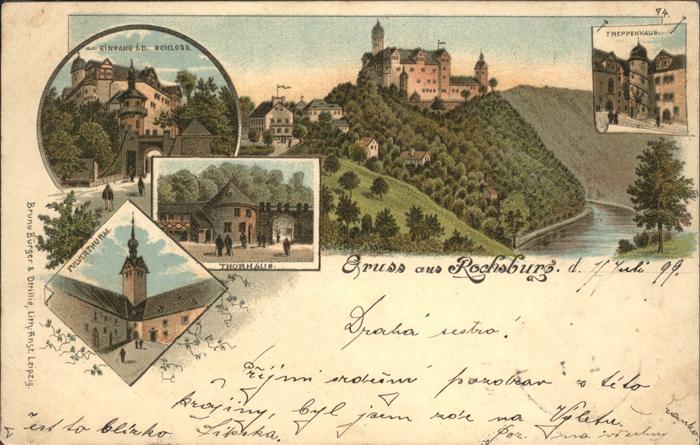 94.
EINGANG I.D. SCHLOSS.
TREPPENHAUS.
THORHAUS.
PULVERTHURM.
Bruno Bürger & Ottilie, Lith. Anst. Leipzig.
Gruss aus Rochsburg. d. 1/7 Juli 99.
Drahá sestro!
Přijmi srdečný pozdrav z této
krajiny, byl jsem zde na Výletu,
jest to blízko Lipska.
Poz. na všechny